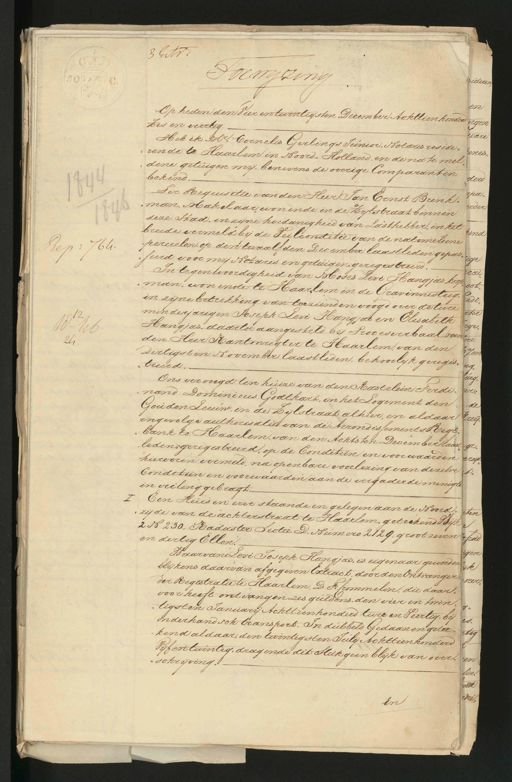 Toewyzing
Op heden den Vier en twintigsten December Achttienhonderd
Zes en veertig
Heb ik Cornelis Gerlings Junior Notaris reside
rende te Haarlem in Noord Holland en de na te mel
dene getuigen my benevens de overige Comparanten
bekend
Ter Requisitie van den Heer Jan Ernst Brenk
man, Makelaar wonende in de Zylstraat binnen
deze Stad, in zyne hoedanigheid van
breede vermeld by de Veilconditie van de natemelene
perceelen op den December laatstleden gepas
seerd voor my Notaris en getuigen geregistreerd.
In tegenwoordigheid van Mozes Levi Hangjas koop
man, wonende te Haarlem in de Gravinnesteeg
in zyne betrekking van toeziende voogd over de twee
minderjarigen Joseph Levi Hangjas en Elisabeth
Hangjas, daartoe aangesteld by Procesverbaal van
den Heer Kantonregter te Haarlem, van den
November laatstleden, behoorlyk geregis
treerd.
Ons vervoegd ten huize van den Kastelein Ferdi
nand Dominicus Godthart, in het Logement den
Gouden Leeuw, in de Zylstraat alhier, en aldaar
ingevolge authorisatie van de Arrondissements Regt
bank te Haarlem, van den Achtsten December
leden geregistreerd, op de Conditien en voorwaarden
hiervoren vermeld, na openbare voorlezing van dezelve
Conditien en voorwaarden aan de vergaderde menigte
in veiling gebragt.
I Een Huis en erve staande en gelegen aan de Noord
zyde van de achterstraat te Haarlem, getekend Wyk
2 N 230, Kadaster Sectie D Numero 2129, groot
en dertig Ellen.
Waarvan Levi Joseph Hangjas is eigenaar geworden
blykens daarvan afgegeven Extract, door den Ontvanger
der Registratie te Haarlem, D. Rommelin, die daar
voor heeft ontvangen zes guldens den vier en twin
tigsten January Achttienhonderd twee en Veertig, by
onderhandsch transport. In dubbeld Gedaan en gete
kend aldaar, den twintigsten July Achttienhonderd
Vyf en twintig, dragende dit Stuk geen blyk van over
schryving.
en
1844
1846
Rep: 764.